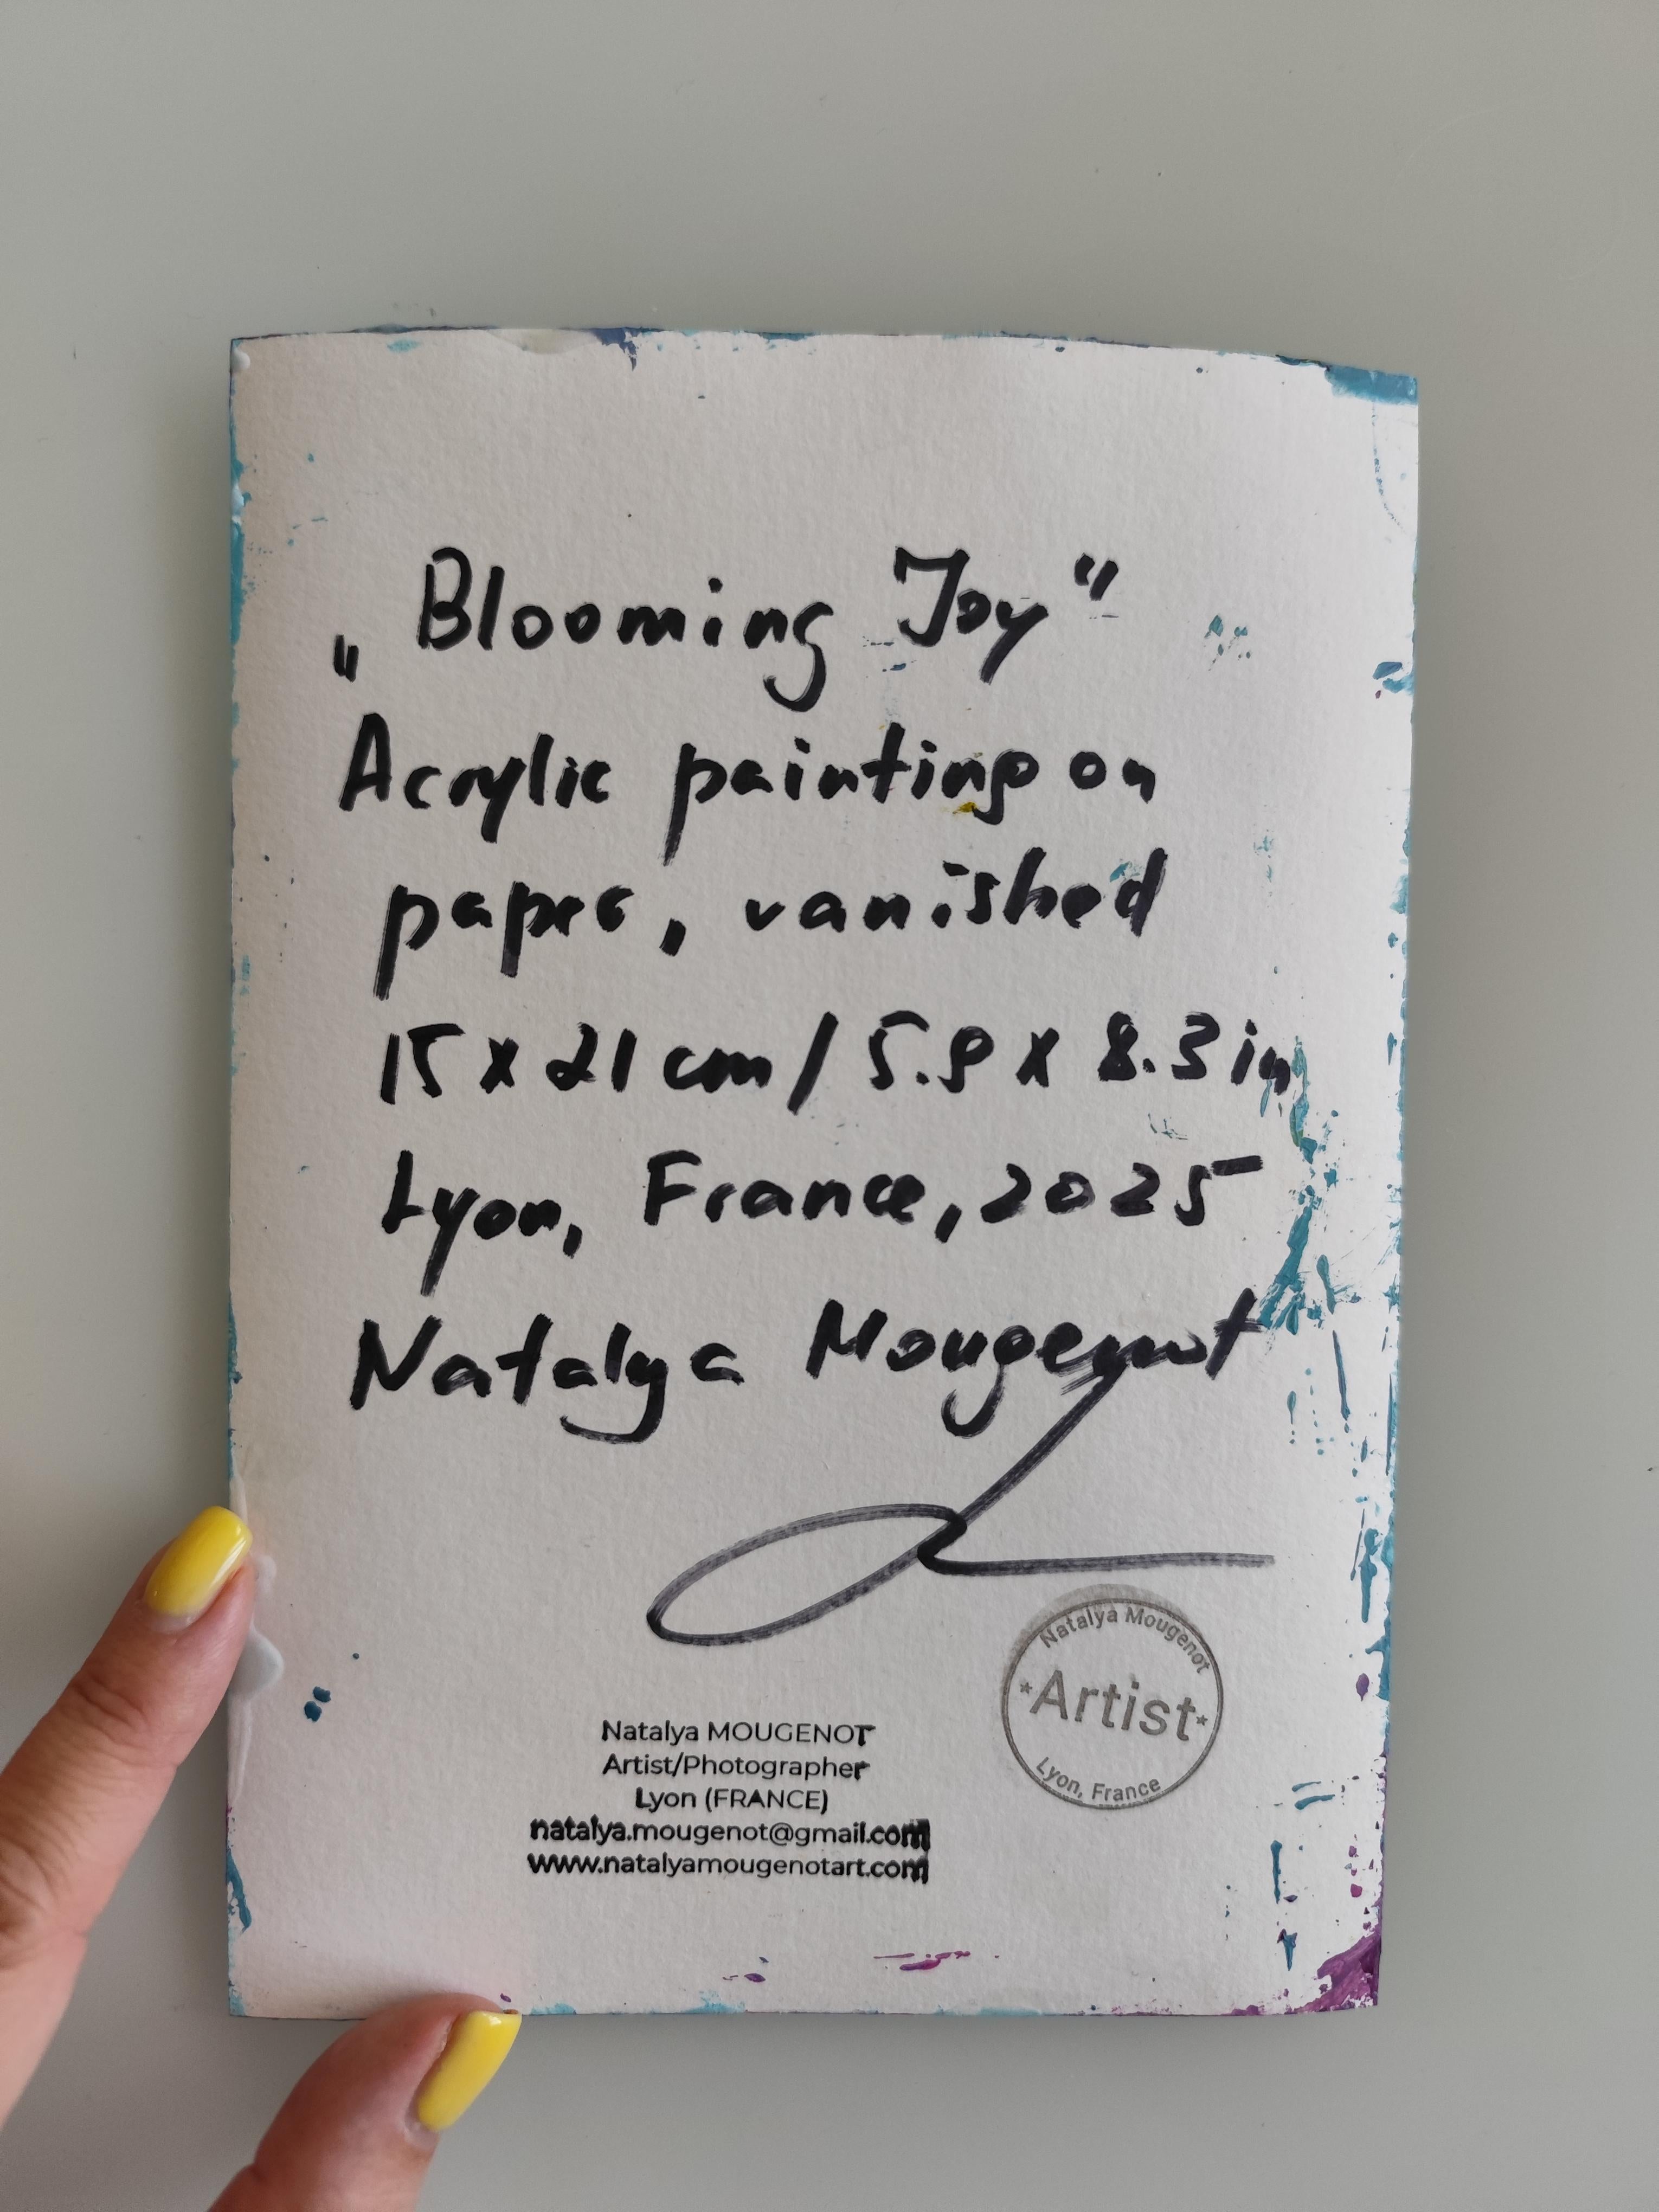 „Blooming Joy"
Acrylic painting on
paper, vanished
15 x 21 cm / 5.9 x 8.3 in
Lyon, France, 2025
Natalya Mougenot
Natalya Mougenot
*Artist*
Lyon, France
Natalya MOUGENOT
Artist/Photographer
Lyon (FRANCE)
natalya.mougenot@gmail.com
www.natalyamougenotart.com